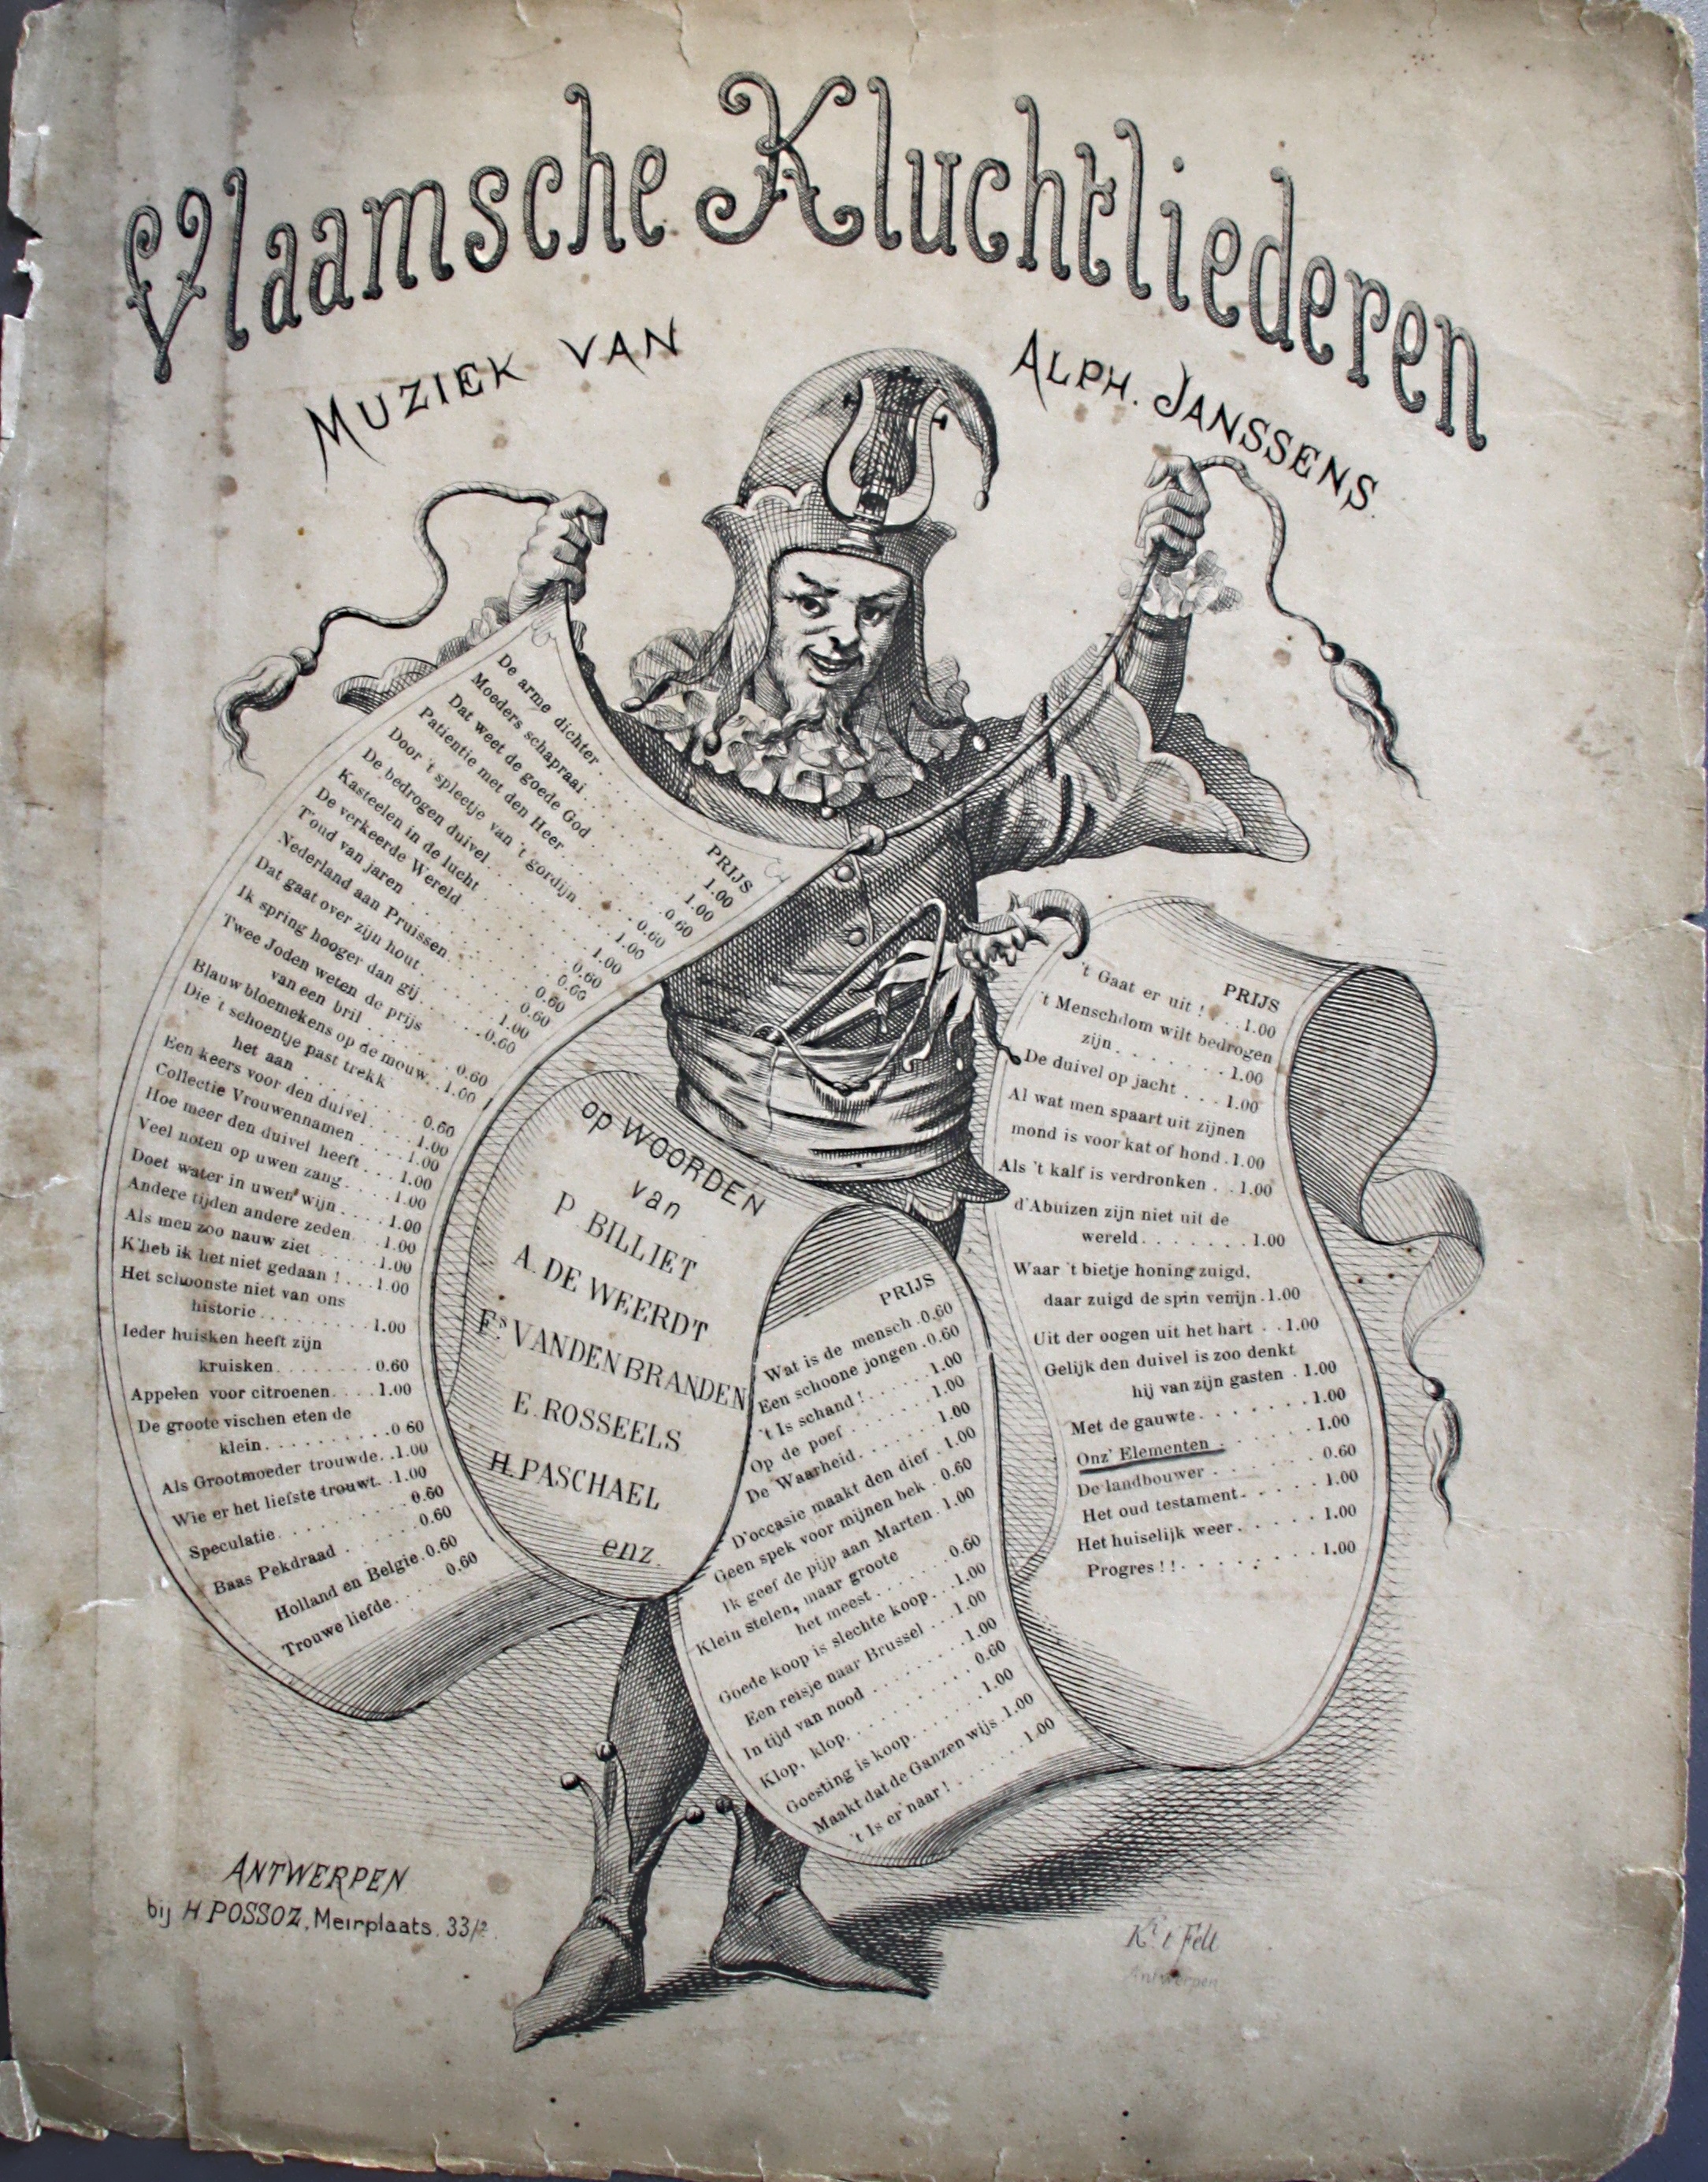 Vlaamsche Kluchtliederen
MUZIEK VAN ALPH. JANSSENS.
PRIJS
De arme dichter . . . 1.00
Moeders schapraai . . . 1.00
Dat weet de goede God . . . 0.60
Patientie met den Heer . . . 0.60
Door 't splectje van 't gordijn . . . 1.00
De bedrogen duivel . . . 1.00
Kasteelen in de lucht . . . 0.60
De verkeerde Wereld . . . 0.60
T'oud van jaren . . . 0.60
Nederland aan Pruissen . . . 0.60
Dat gaat over zijn hout . . . 1.00
Ik spring hooger dan gij . . . 0.60
Twee Joden weten de prijs
van een bril . . . 0.60
Blauw bloemekens op de mouw . . 1.00
Die 't schoentje past trekk
het aan . . . 0.60
Een keers voor den duivel . . . 1.00
Collectie Vrouwennamen . . . 1.00
Hoe meer den duivel heeft . . . 1.00
Veel noten op uwen zang . . . 1.00
Doet water in uwen wijn . . . 1.00
Andere tijden andere zeden . . . 1.00
Als men zoo nauw ziet . . . 1.00
K'heb ik het niet gedaan ! . . . 1.00
Het schoonste niet van ons
historie . . . 1.00
Ieder huisken heeft zijn
kruisken . . . 0.60
Appelen voor citroenen . . . 1.00
De groote vischen eten de
klein . . . 0 60
Als Grootmoeder trouwde . . 1.00
Wie er het liefste trouwt . . 1.00
Speculatie . . . 0.60
Baas Pekdraad . . . 0.60
Holland en Belgie . 0.60
Trouwe liefde . . . 0.60
op WOORDEN
van
P BILLIET
A. DE WEERDT
Fs VANDEN BRANDEN
E. ROSSEELS
H. PASCHAEL
enz.
PRIJS
Wat is de mensch . 0.60
Een schoone jongen . 0.60
't Is schand ! . . . 1.00
Op de poef . . . 1.00
De Waarheid . . . 1.00
D'occasie maakt den dief . 1.00
Geen spek voor mijnen bek . 0.60
Ik geef de pijp aan Marten . 1.00
Klein stelen, maar groote
het meest . . . 0.60
Goede koop is slechte koop . . . 1.00
Een reisje naar Brussel . . . 1.00
In tijd van nood . . . 1.00
Klop, klop . . . 0.60
Goesting is koop . . . 1.00
Maakt dat de Ganzen wijs . 1.00
't Is er naar ! . . . 1.00
PRIJS
't Gaat er uit ! . . . 1.00
't Menschdom wilt bedrogen
zijn . . . 1.00
De duivel op jacht . . . 1.00
Al wat men spaart uit zijnen
mond is voor kat of hond . 1.00
Als 't kalf is verdronken . . 1.00
d'Abuizen zijn niet uit de
wereld . . . 1.00
Waar 't bietje honing zuigd,
daar zuigd de spin venijn . 1.00
Uit der oogen uit het hart . . 1.00
Gelijk den duivel is zoo denkt
hij van zijn gasten . 1.00
Met de gauwte . . . 1.00
Onz' Elementen . . . 1.00
De landbouwer . . . 0.60
Het oud testament . . . 1.00
Het huiselijk weer . . . 1.00
Progres ! ! . . . 1.00
ANTWERPEN
bij H. POSSOZ, Meirplaats. 33/2.
Kr. t Felt
Antwerpen